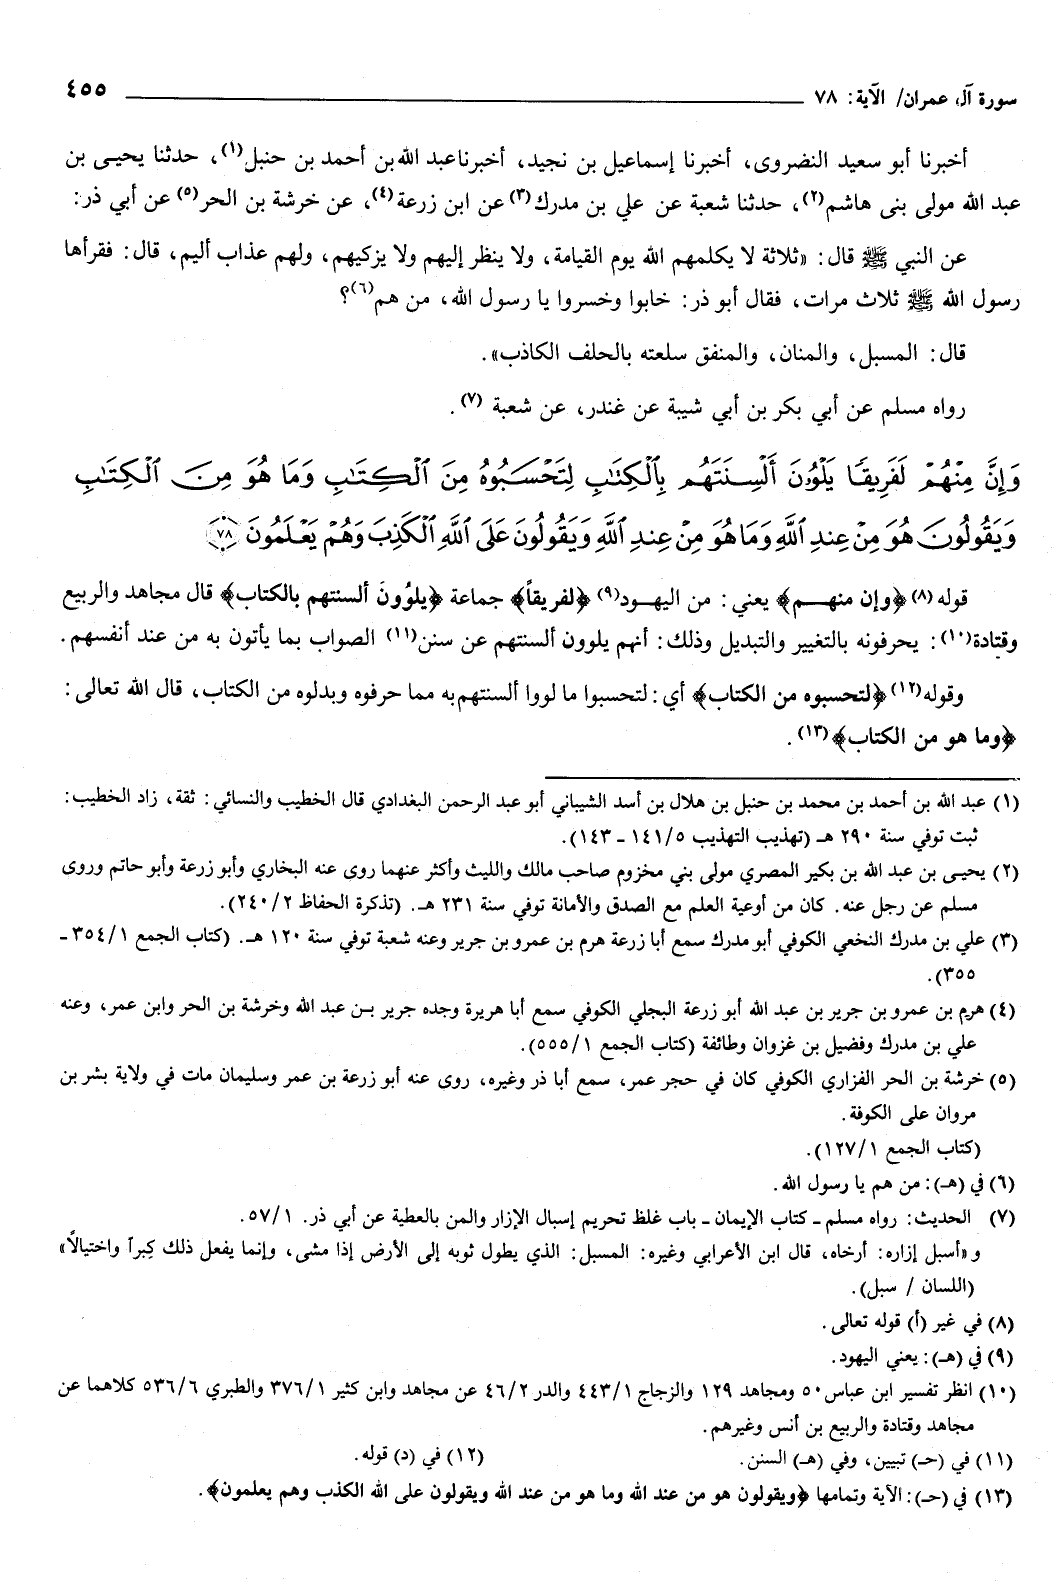 سورة آل عمران/ الآية: ٧٨ ٤٥٥
أخبرنا أبو سعيد النضروى، أخبرنا إسماعيل بن نجيد، أخبرنا عبد الله بن أحمد بن حنبل(١)، حدثنا يحيـى بن
عبد الله مولى بنى هاشم(٢)، حدثنا شعبة عن علي بن مدرك(٣) عن ابن زرعة(٤)، عن خرشة بن الحر(٥) عن أبي ذر:
عن النبي ﷺ قال: «ثلاثة لا يكلمهم الله يوم القيامة، ولا ينظر إليهم ولا يزكيهم، ولهم عذاب أليم، قال: فقرأها
رسول الله ﷺ ثلاث مرات، فقال أبو ذر: خابوا وخسروا يا رسول الله، من هم(٦)؟
قال: المسبل، والمنان، والمنفق سلعته بالحلف الكاذب».
رواه مسلم عن أبي بكر بن أبي شيبة عن غندر، عن شعبة (٧).
وَإِنَّ مِنْهُمْ لَفَرِيقًا يَلْوُۥنَ أَلْسِنَتَهُم بِالْكِتَٰبِ لِتَحْسَبُوهُ مِنَ الْكِتَٰبِ وَمَا هُوَ مِنَ الْكِتَٰبِ
وَيَقُولُونَ هُوَ مِنْ عِندِ اللَّهِ وَمَا هُوَ مِنْ عِندِ اللَّهِ وَيَقُولُونَ عَلَى اللَّهِ الْكَذِبَ وَهُمْ يَعْلَمُونَ ٧٨
قوله(٨) ﴿وإن منهـــم﴾ يعني: من اليهـود(٩) ﴿لفريقاً﴾ جماعة ﴿يلوُونَ ألسنتهم بالكتاب﴾ قال مجاهد والربيع
وقتادة(١٠): يحرفونه بالتغيير والتبديل وذلك: أنهم يلوون ألسنتهم عن سنن(١١) الصواب بما يأتون به من عند أنفسهم.
وقوله(١٢) ﴿لتحسبوه من الكتاب﴾ أي: لتحسبوا ما لووا ألسنتهم به مما حرفوه وبدلوه من الكتاب، قال الله تعالى:
﴿وما هو من الكتاب﴾(١٣).
(١) عبد الله بن أحمد بن محمد بن حنبل بن هلال بن أسد الشيباني أبو عبد الرحمن البغدادي قال الخطيب والنسائي: ثقة، زاد الخطيب:
ثبت توفي سنة ٢٩٠ هـ (تهذيب التهذيب ١٤١/٥ ـ ١٤٣).
(٢) يحيـى بن عبد الله بن بكير المصري مولى بني مخزوم صاحب مالك والليث وأكثر عنهما روى عنه البخاري وأبو زرعة وأبو حاتم وروى
مسلم عن رجل عنه. كان من أوعية العلم مع الصدق والأمانة توفي سنة ٢٣١ هـ. (تذكرة الحفاظ ٢٤٠/٢).
(٣) علي بن مدرك النخعي الكوفي أبو مدرك سمع أبا زرعة هرم بن عمرو بن جرير وعنه شعبة توفي سنة ١٢٠ هـ. (كتاب الجمع ٣٥٤/١ ـ
٣٥٥).
(٤) هرم بن عمرو بن جرير بن عبد الله أبو زرعة البجلي الكوفي سمع أبا هريرة وجده جرير بـن عبد الله وخرشة بن الحر وابن عمر، وعنه
علي بن مدرك وفضيل بن غزوان وطائفة (كتاب الجمع ٥٥٥/١).
(٥) خرشة بن الحر الفزاري الكوفي كان في حجر عمر، سمع أبا ذر وغيره، روى عنه أبو زرعة بن عمر وسليمان مات في ولاية بشر بن
مروان على الكوفة.
(كتاب الجمع ١٢٧/١).
(٦) في (هـ): من هم يا رسول الله.
(٧) الحديث: رواه مسلم ـ كتاب الإيمان ـ باب غلظ تحريم إسبال الإزار والمن بالعطية عن أبي ذر. ٥٧/١.
و «أسبل إزاره: أرخاه، قال ابن الأعرابي وغيره: المسبل: الذي يطول ثوبه إلى الأرض إذا مشى، وإنما يفعل ذلك كِبراً واختيالاً»
(اللسان / سبل).
(٨) في غير (أ) قوله تعالى.
(٩) في (هـ): يعني اليهود.
(١٠) انظر تفسير ابن عباس ٥٠ ومجاهد ١٢٩ والزجاج ٤٤٣/١ والدر ٤٦/٢ عن مجاهد وابن كثير ٣٧٦/١ والطبري ٥٣٦/٦ كلاهما عن
مجاهد وقتادة والربيع بن أنس وغيرهم.
(١١) في (حـ) تبيين، وفي (هـ) السنن. (١٢) في (د) قوله.
(١٣) في (حـ): الآية وتمامها ﴿ويقولون هو من عند الله وما هو من عند الله ويقولون على الله الكذب وهم يعلمون﴾.